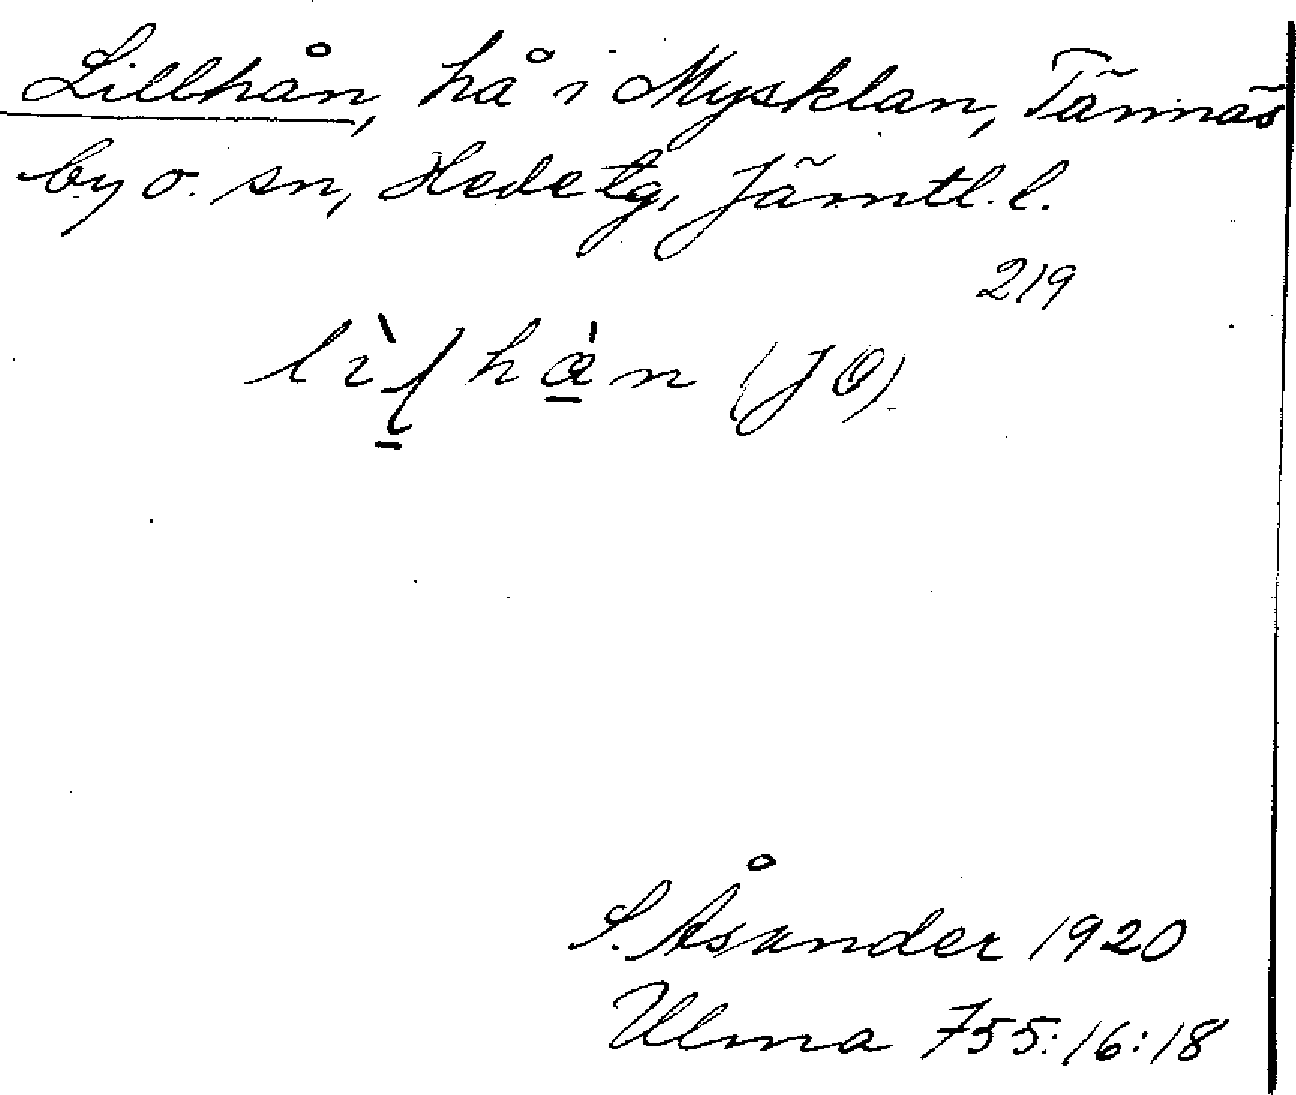 Lillhån, hå i Mysklan, Tännäs
by o. sn, Hede tg, Jämtl. l.
219
(JO)
S. Åsander 1920
Ulma 755:16:18